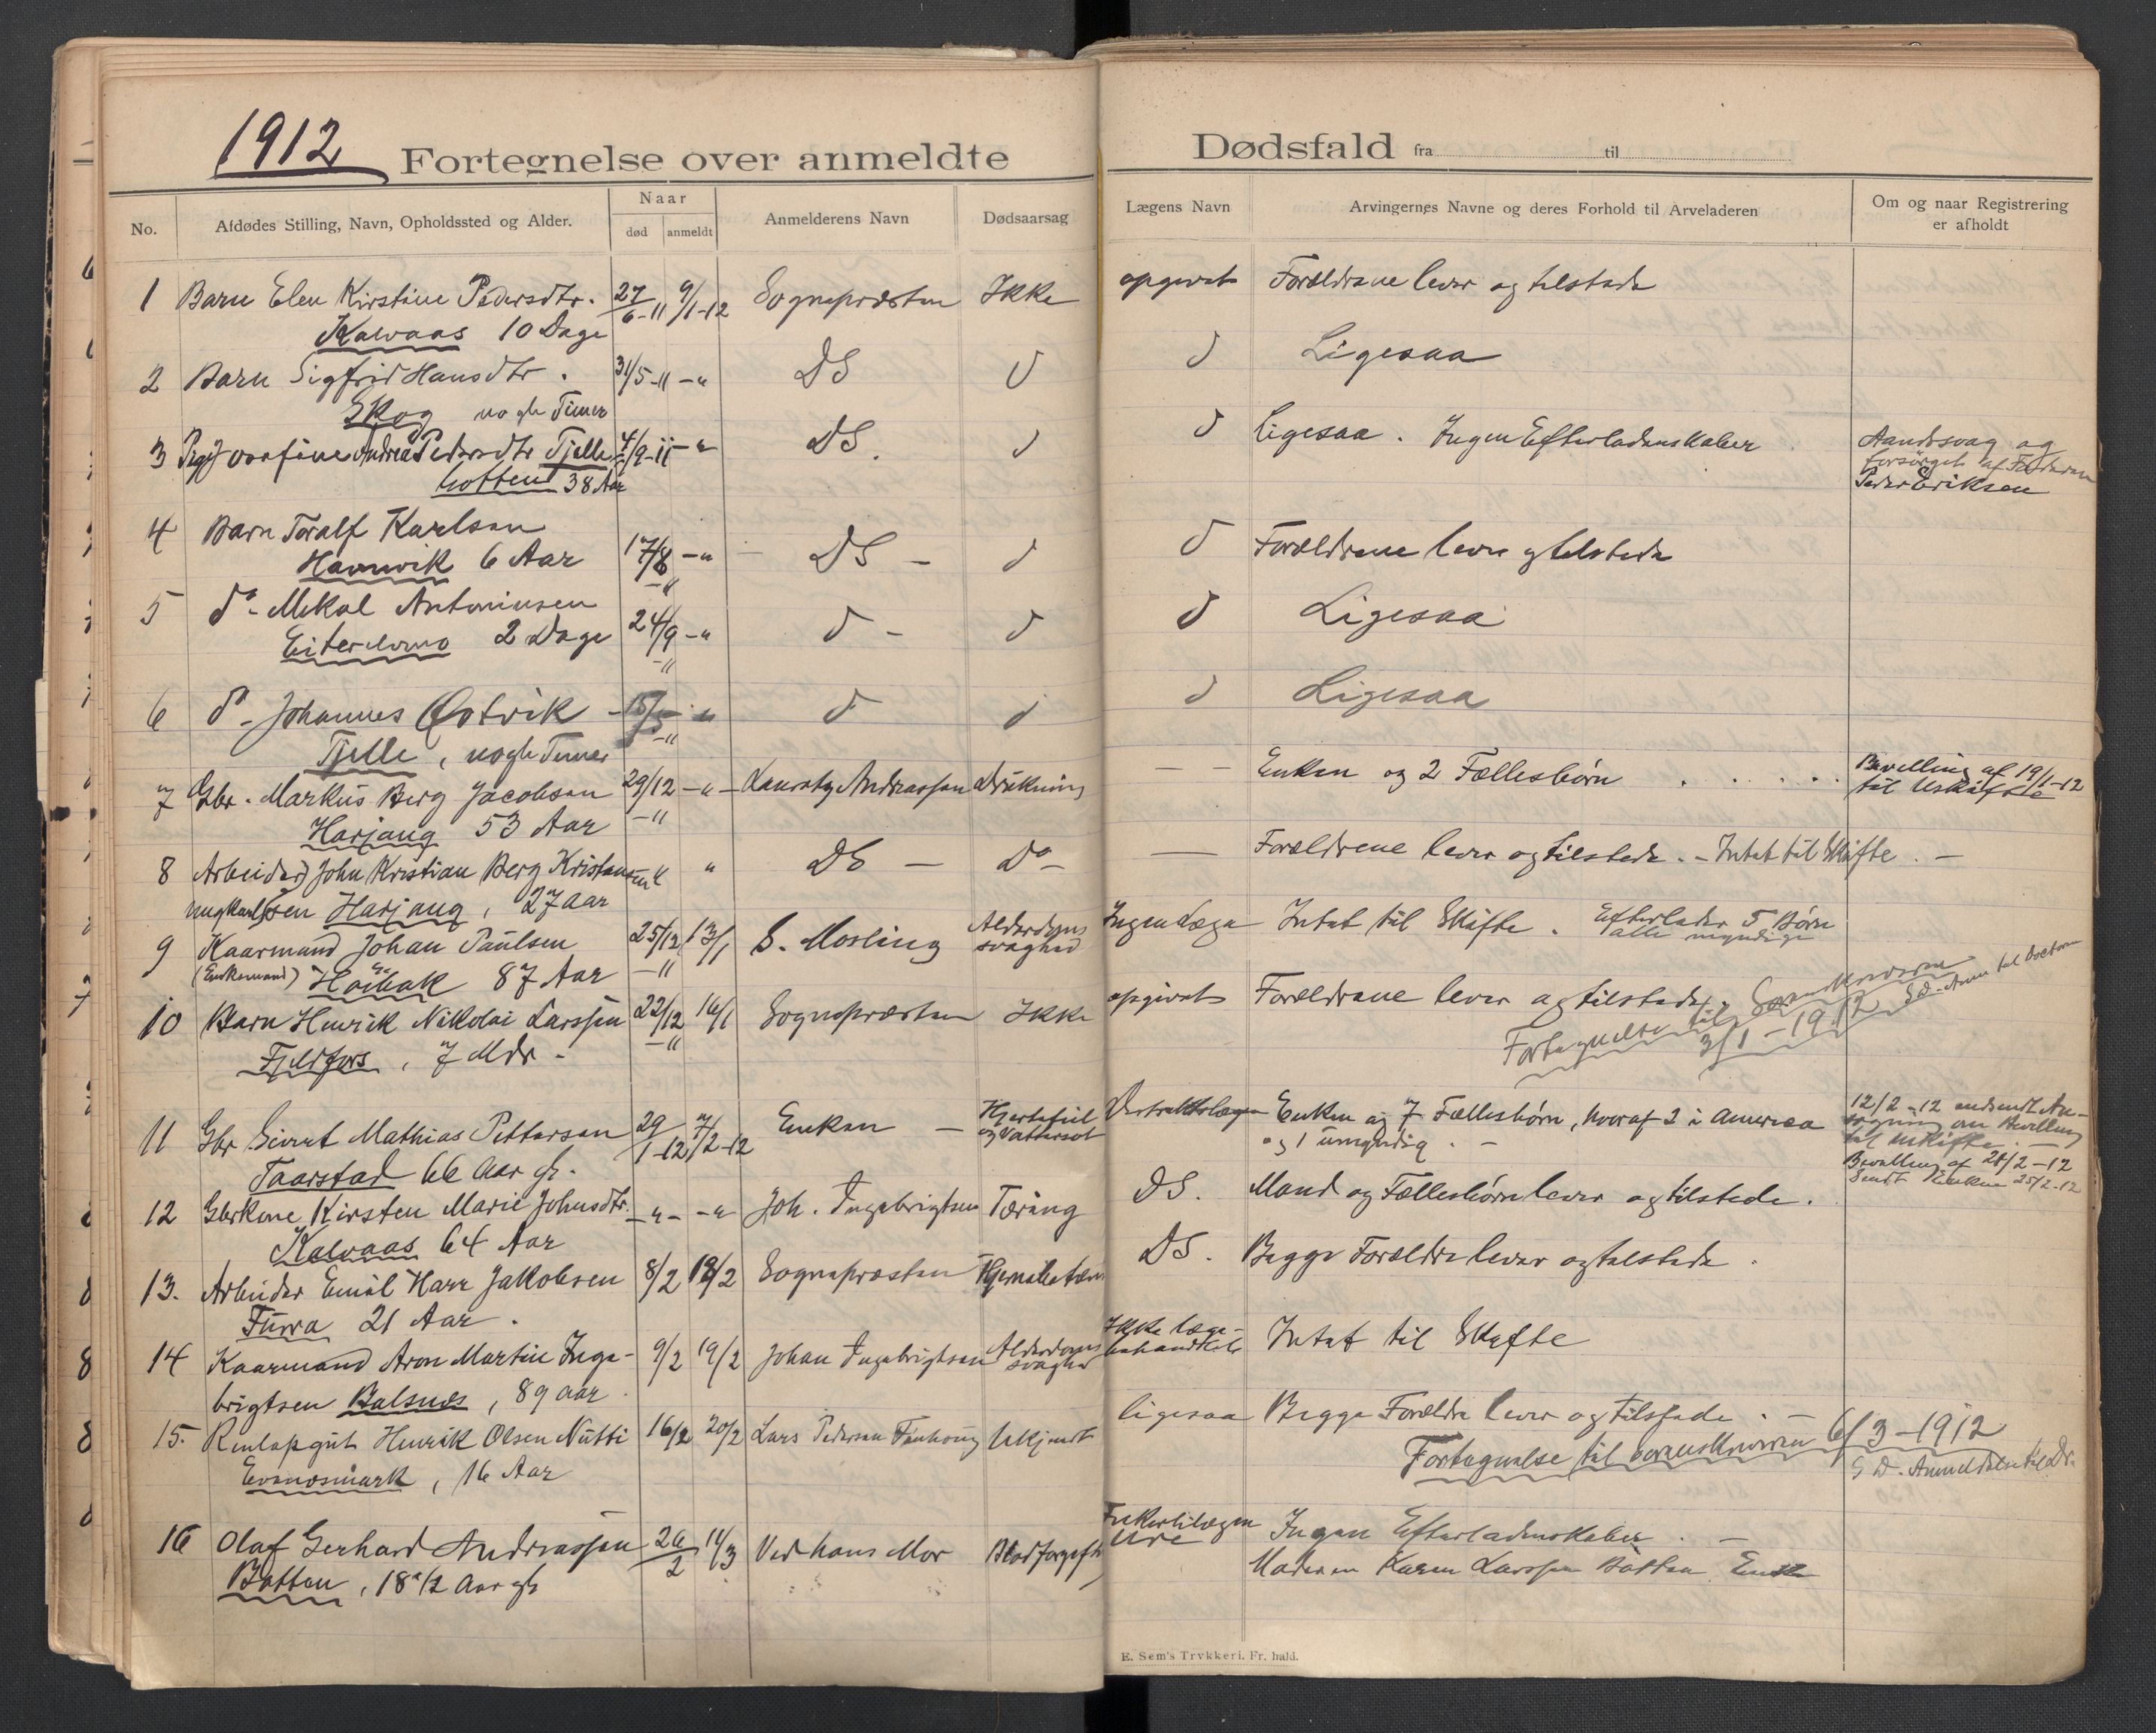 1912
Fortegnelse over anmeldte
Dødsfald fra til
No.
Afdødes Stilling, Navn, Opholdssted og Alder.
Naar
død anmeldt
Anmelderens Navn
Dødsaarsag
Lægens Navn
Arvingernes Navne og deres Forhold til Arveladeren
Om og naar Registrering
er afholdt
1 Barn Elen Kirstine Pedersdtr. 27/6-11 9/1-12 Sognepræsten Ikke opgivet Forældrene lever og tilstede
Kalvaas 10 Dage
2 Barn Sigfrid Hansdtr. 31/5-11 -" DS Ligesaa
Skog nogle Timer
3 Pige Josefine Andrea Pedersdtr Tjelle 4/9-11 -" DS. Ligesaa. Ingen Efterladenskaber Aandssvag og
botten 38 Aar forsørget af Faderen
Peder Eriksen
4 Barn Toralf Karlsen
Hamnvik 6 Aar 17/8 -" DS - Forældrene lever og tilstede
-"
5 do - Mekal Antoniusen
2 Dage 24/9 -" Ligesaa
-"
6 do - Johannes Østvik -" Ligesaa
Tjelle, nogle Timer -"
7 Gbr. Markus Berg Jacobsen 29/12 -" - Andreassen Drukning - - Enken og 2 Fællesbørn Bevilling af 19/1-12
Harjang 53 Aar -" til Uskifte
8 Arbeider John Kristian Berg Kristensen " DS - Do - Forældrene lever og tilstede. - Intet til Skifte. -
Harjang, 27 aar
9 Kaarmand Johan Paulsen 25/12 13/1 S. Mosling Alderdoms Ingen Læge Intet til Skifte. Efterlader 5 Børn
(Enkemand) 87 Aar -" svaghed alle myndige
10 Barn Henrik Nikolai Larssen 22/12 16/1 Sognepræsten Ikke opgivet Forældrene lever og tilstede.
Fjeldfors, 7 Mdr - -"
Fortegnelse til Sorenskriveren
3/1-1912
11 Gbr Sivert Mathias Pettersen 29/1-12 7/2-12 Enken - Hjertefeil Distriktslægen Enken og 7 Fællesbørn, hvoraf 2 i America 12/2-12 indsendt An-
Taarstad 66 Aar gl. og Vattersot og 1 umyndig. - søgning om Bevilling
til Uskifte. -
Bevilling af 21/2-12
Sendt Enken 25/2-12
12 Gbrkone Kirsten Marie Johnsdtr. -"- -" Joh. Ingebrigtsen Tæring DS. Mand og Fællesbørn lever og tilstede.
Kalvaas 64 Aar
13. Arbeider Emil Harr Jakobsen 8/2 18/2 Sognepræsten DS. Begge Forældre lever og tilstede.
Furra 21 Aar.
14 Kaarmand Aron Martin Inge- 9/2 19/2 Johan Ingebrigtsen Alderdoms Ikke læge- Intet til Skifte
brigtsen Balsnes, 89 aar. svaghed behandlet
15. Henrik Olsen Nutti 16/2 20/2 Lars Pedersen Ukjendt ligesaa Begge Forældre lever og tilstede. -
Evenesmark, 16 Aar
Fortegnelse til Sorenskriveren 6/3-1912
S D. Anmeldelse til Dr.
16 Olaf Gerhard Andreassen 26/2 14/3 Ved hans Mor Ingen Efterladenskaber. -
Botten, 18 1/2 Aar gl Moderen Karen Larssen Botten Enke
E. Sem's Trykkeri. Fr.hald.